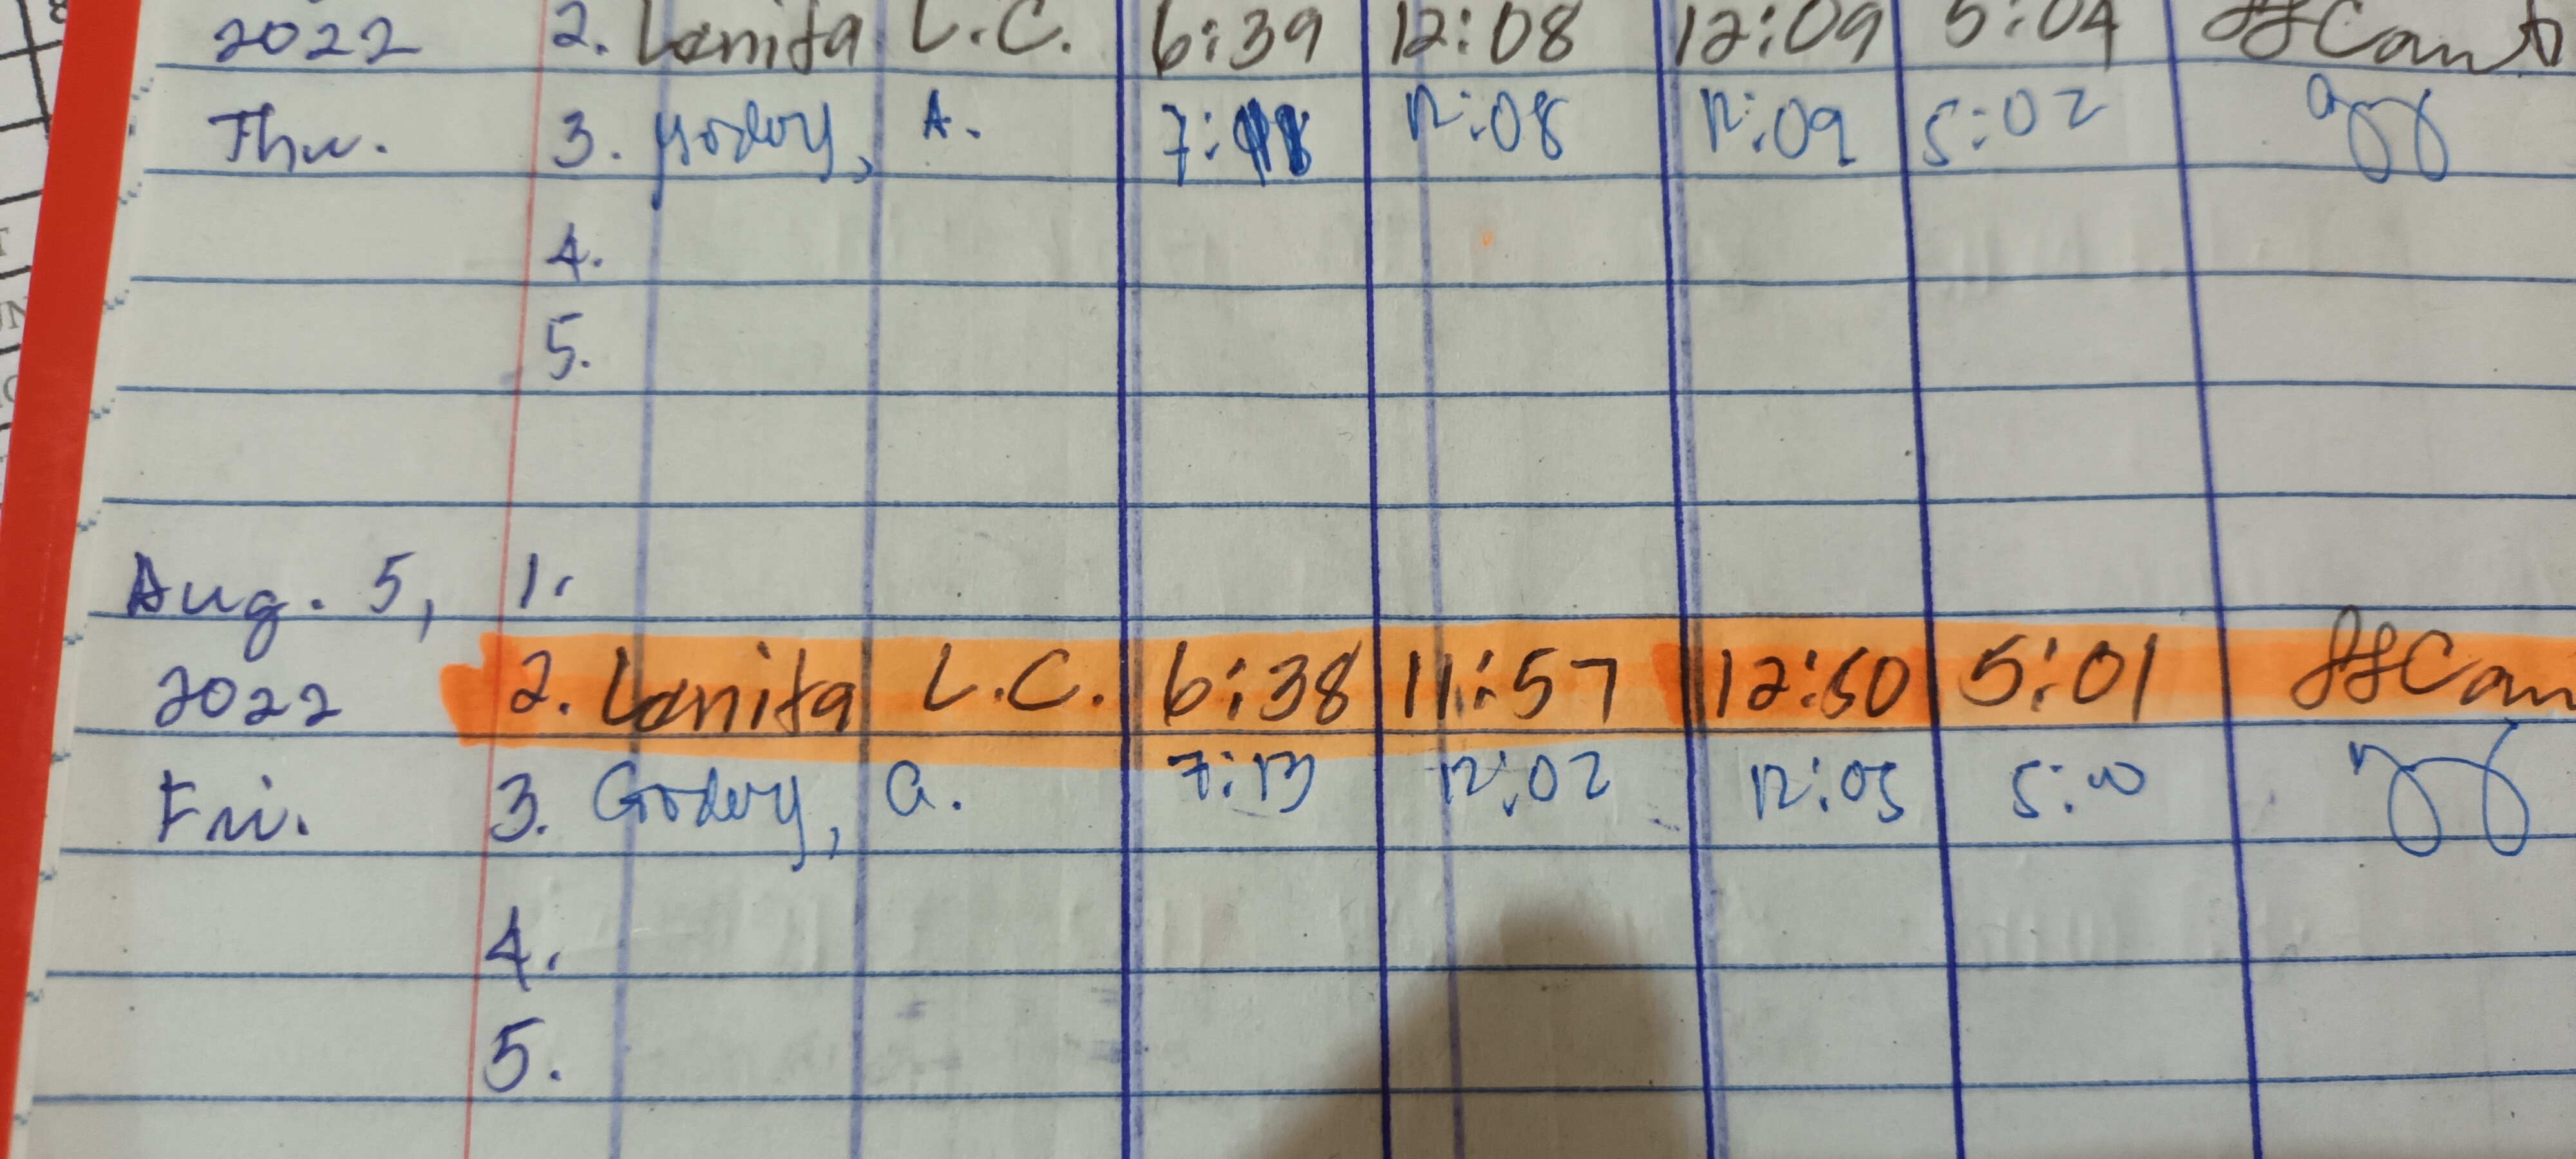 2022 2. Lanita L.C. 6:39 12:08 12:09 5:04
Thu. 3. Godoy, A. 7:18 12:08 12:09 5:02
4.
5.
Aug. 5, 1.
2022 2. Lanita L.C. 6:38 11:57 12:50 5:01
Fri. 3. Godoy, A. 7:13 12:02 12:05 5:00
4.
5.